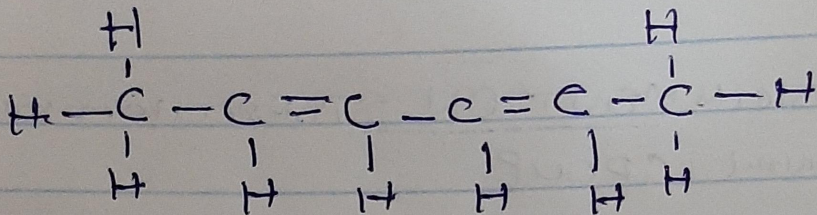 H H
H - C - C = C - C = C - C - H
H H H H H H